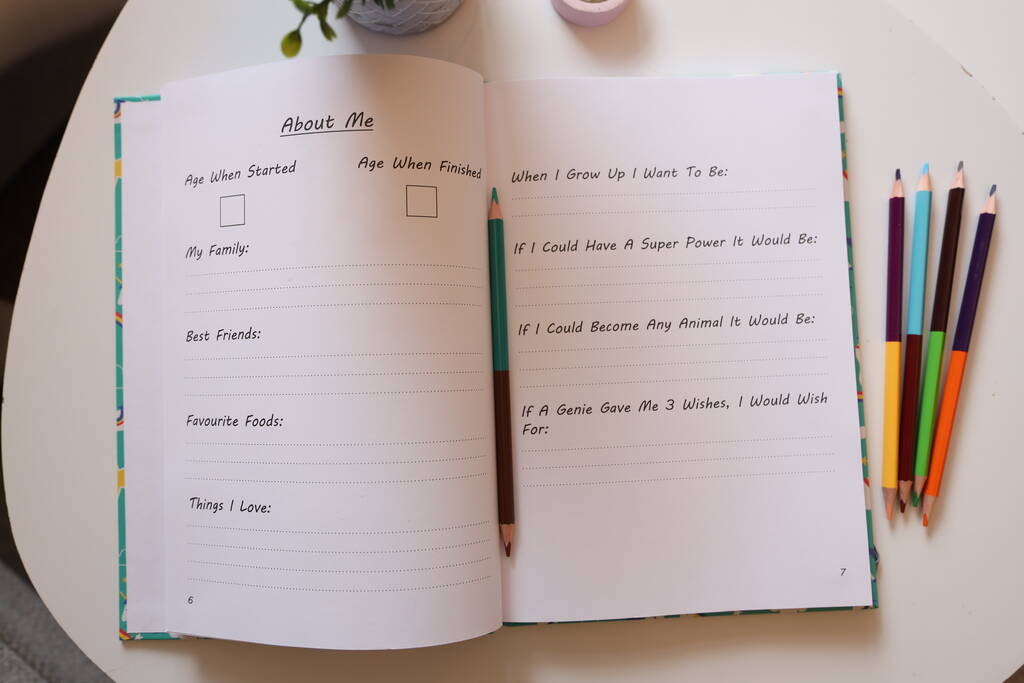 About Me
Age When Started
Age When Finished
My Family:
Best Friends:
Favourite Foods:
Things I Love:
6
When I Grow Up I Want To Be:
If I Could Have A Super Power It Would Be:
If I Could Become Any Animal It Would Be:
If A Genie Gave Me 3 Wishes, I Would Wish
For:
7